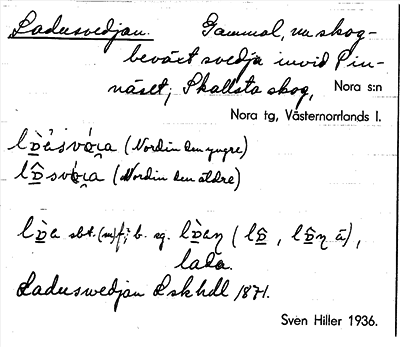 Ladusvedjan. Gammal, nu skog-
beväxt svedja invid Pin-
näset, Skallsta skog, Nora s:n
Nora tg, Västernorrlands l.
(Nordin den yngre)
(Nordin den äldre)
sbt. (m) f; b. sg.
lada.
Laduswedjan L skhdl 1871.
Sven Hiller 1936.